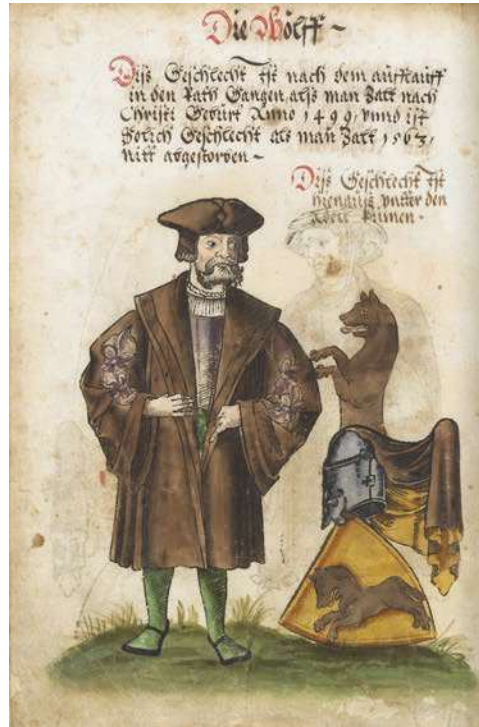 Die Wölff ~
Diß Geschlecht Ist nach dem aufflauff
in den Rath Gangen, alß man Zalt nach
Christi Geburt Anno 1499, vnnd ist
Geschlecht als man Zalt 1563,
nitt abgestorben ~
Diß Geschlecht Ist
vnter den